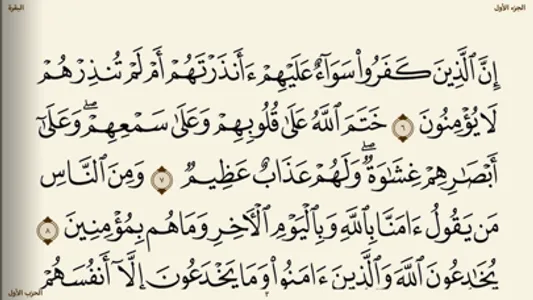 الجزء الأول
البقرة
إِنَّ ٱلَّذِينَ كَفَرُوا۟ سَوَآءٌ عَلَيْهِمْ ءَأَنذَرْتَهُمْ أَمْ لَمْ تُنذِرْهُمْ
لَا يُؤْمِنُونَ ٦ خَتَمَ ٱللَّهُ عَلَىٰ قُلُوبِهِمْ وَعَلَىٰ سَمْعِهِمْ ۖ وَعَلَىٰٓ
أَبْصَـٰرِهِمْ غِشَـٰوَةٌ ۖ وَلَهُمْ عَذَابٌ عَظِيمٌ ٧ وَمِنَ ٱلنَّاسِ
مَن يَقُولُ ءَامَنَّا بِٱللَّهِ وَبِٱلْيَوْمِ ٱلْـَٔاخِرِ وَمَا هُم بِمُؤْمِنِينَ ٨
يُخَـٰدِعُونَ ٱللَّهَ وَٱلَّذِينَ ءَامَنُوا۟ وَمَا يَخْدَعُونَ إِلَّآ أَنفُسَهُمْ
٣
الحزب الأول